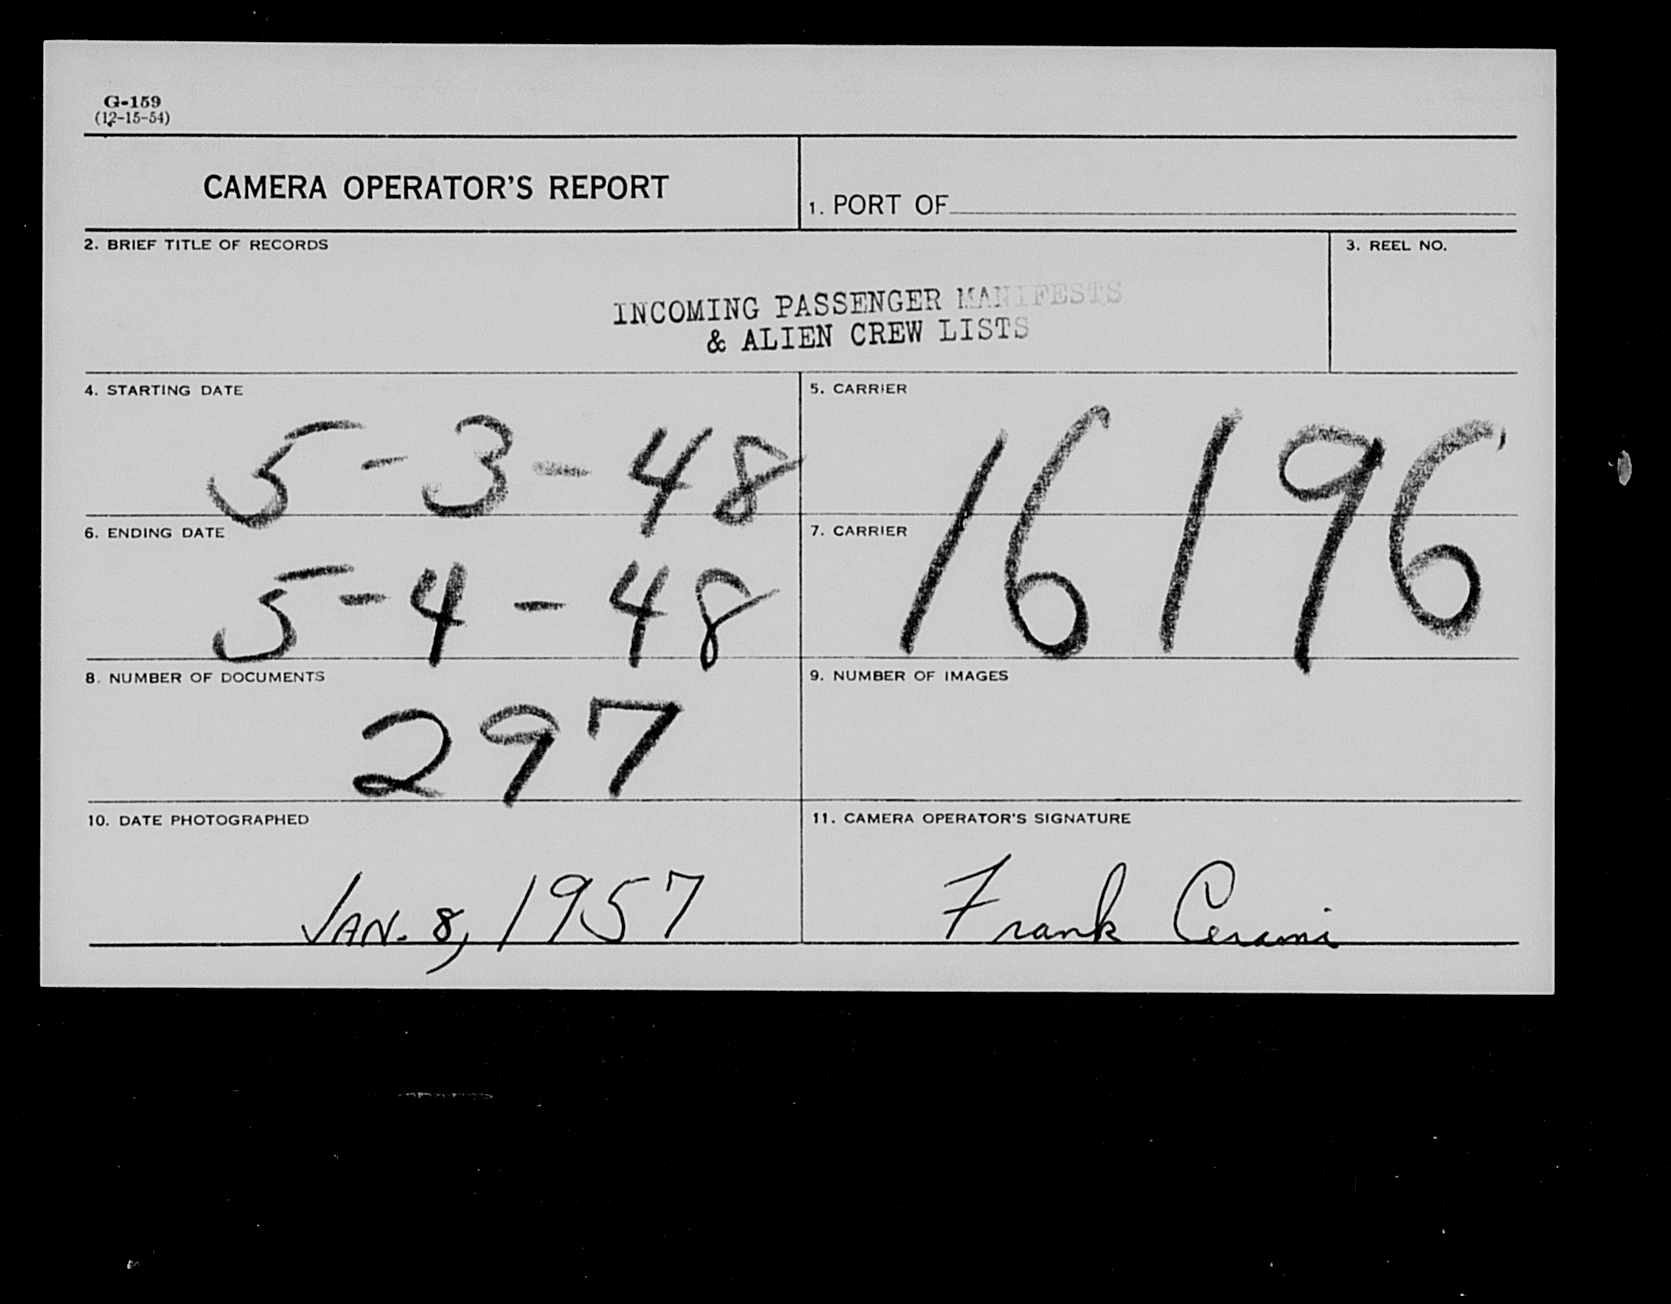 G-159
(12-15-54)
CAMERA OPERATOR'S REPORT
1. PORT OF
2. BRIEF TITLE OF RECORDS
3. REEL NO.
INCOMING PASSENGER MANIFESTS
& ALIEN CREW LISTS
4. STARTING DATE
5-3-48
5. CARRIER
16196
6. ENDING DATE
5-4-48
7. CARRIER
8. NUMBER OF DOCUMENTS
297
9. NUMBER OF IMAGES
10. DATE PHOTOGRAPHED
JAN. 8, 1957
11. CAMERA OPERATOR'S SIGNATURE
Frank Cerami